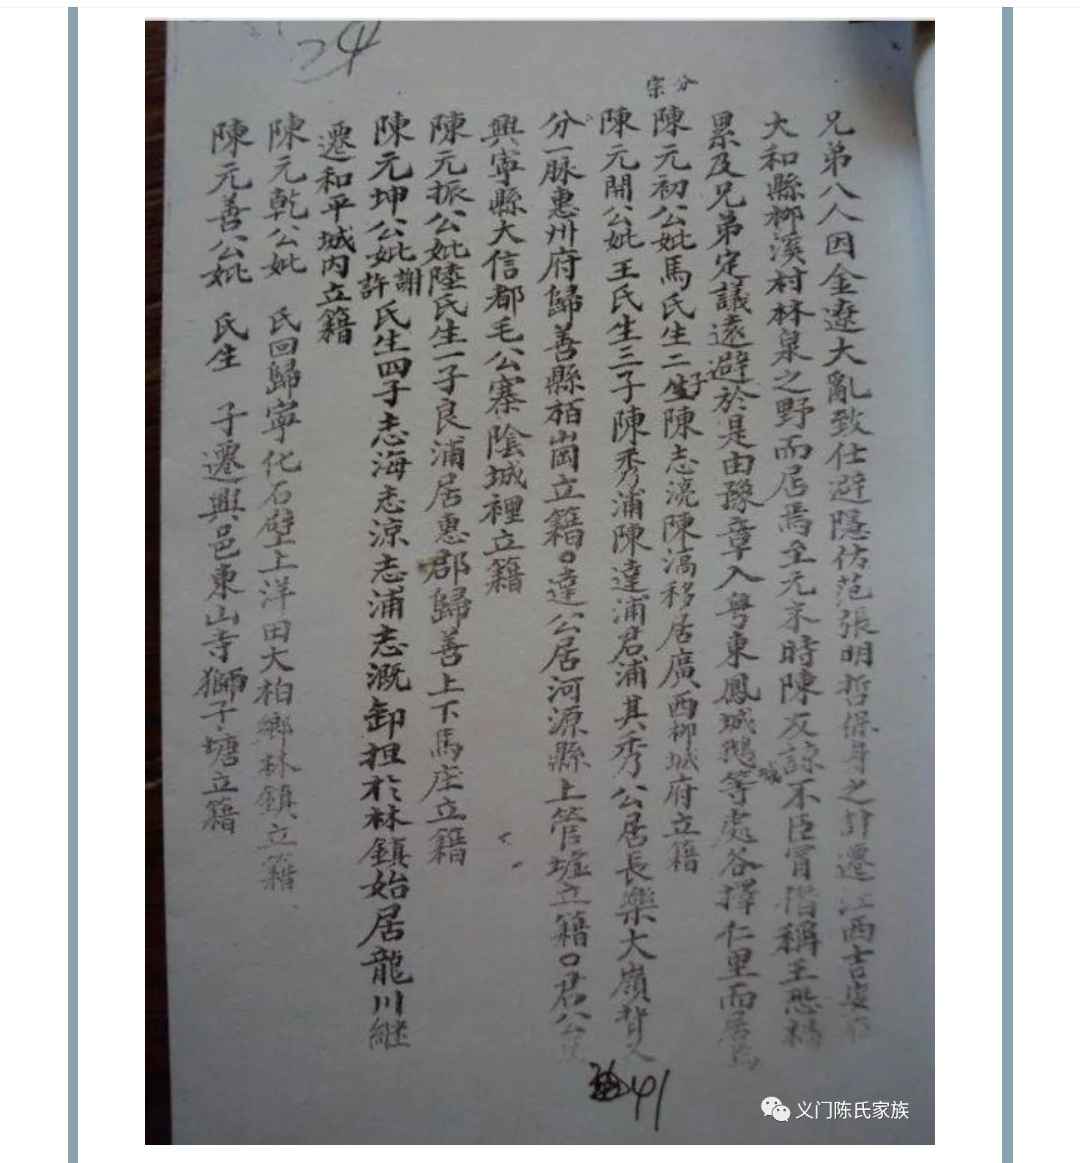 24
兄弟八人因金遼大亂致仕避隱仿范張明哲保身之計遷江西吉安府
大和縣柳溪村林泉之野而居焉至元末時陳友諒不臣冒階稱王恐
累及兄弟定議遠避於是由豫章入粵東鳳城鵝城等處各擇仁里而居焉
分宗
陳元初公妣馬氏生二子陳志淙陳滈移居廣西柳城府立籍
陳元開公妣王氏生三子陳秀浦陳達浦君浦其秀公居長樂大嶺背又
分一脉惠州府歸善縣栢崗立籍○達公居河源縣上管墟立籍○君公
興寧縣大信都毛公寨陰城裡立籍
陳元振公妣陸氏生一子良浦居惠郡歸善上下馬庄立籍
陳元坤公妣謝許氏生四子志海志涼志浦志溉卸担於林鎮始居龍川繼
遷和平城内立籍
陳元乾公妣 氏回歸寧化石壁上洋田大柏鄉林鎮立籍
陳元善公妣 氏生 子遷興邑東山寺獅子塘立籍
41
义门陈氏家族